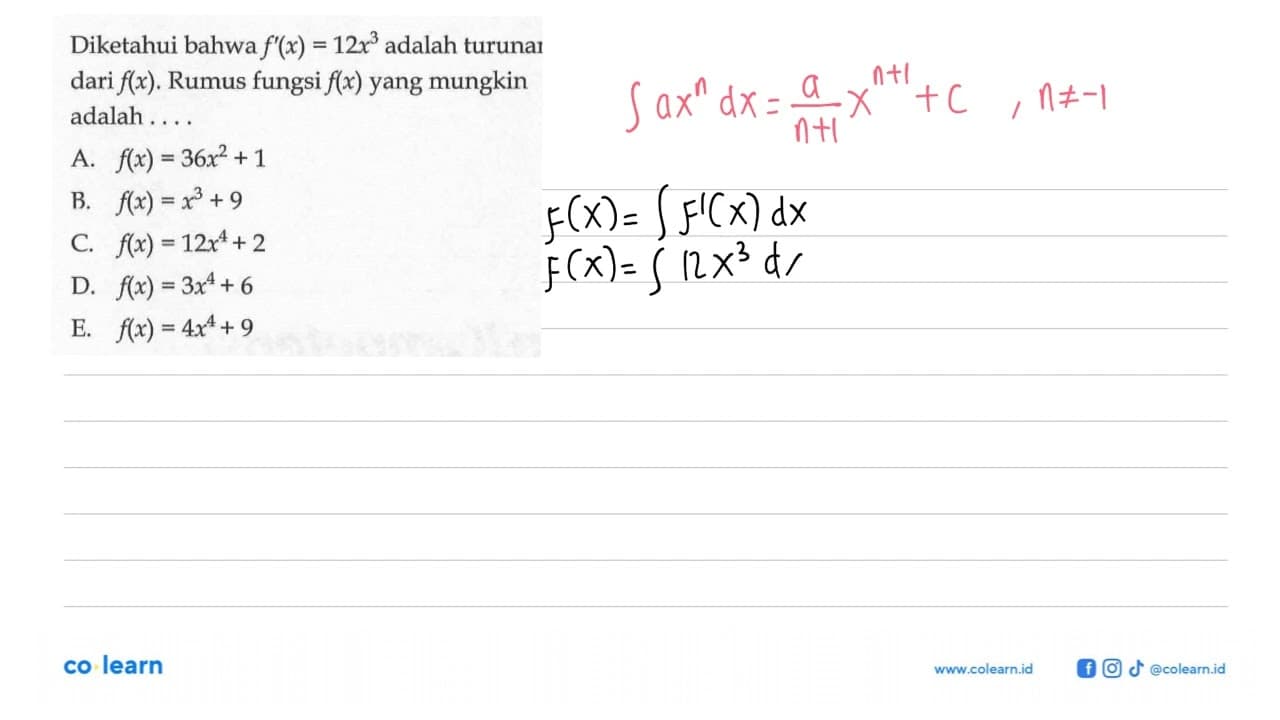 Diketahui bahwa f'(x) = 12x³ adalah turunan
dari f(x). Rumus fungsi f(x) yang mungkin
adalah . . . .
A. f(x) = 36x² + 1
B. f(x) = x³ + 9
C. f(x) = 12x⁴ + 2
D. f(x) = 3x⁴ + 6
E. f(x) = 4x⁴ + 9
∫ axⁿ dx = a/(n+1) xⁿ⁺¹ + C , n ≠ -1
F(x) = ∫ F'(x) dx
F(x) = ∫ 12x³ d
co learn
www.colearn.id
@colearn.id